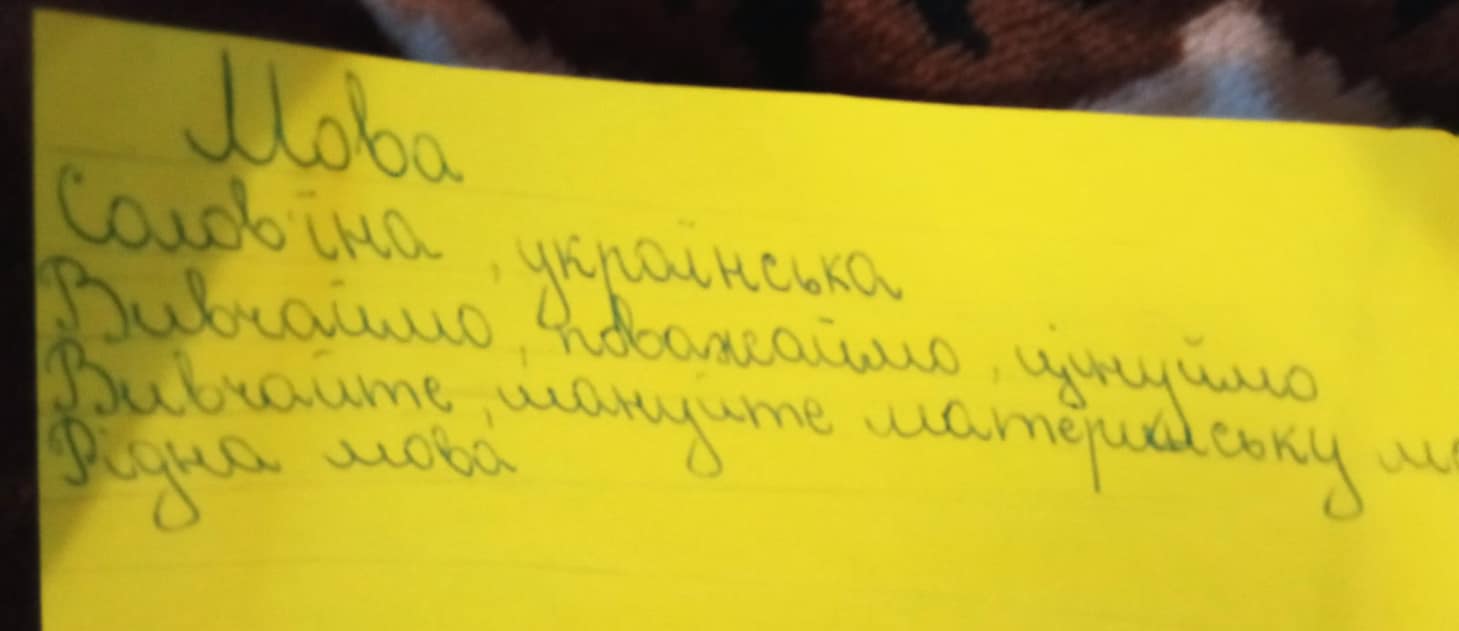 Мова
Солов'їна, українська
Вивчаймо, поважаймо, цінуймо
Вивчайте, шануйте материнську
Рідна мова